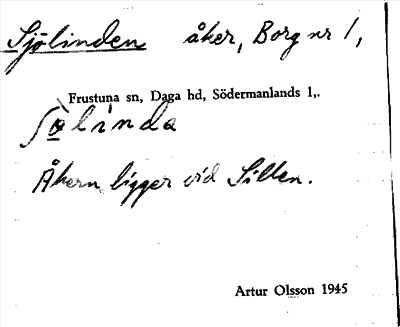 Sjölinden åker, Borg nr 1,
Frustuna sn, Daga hd, Södermanlands l,.
ʃö̀linda
Åkern ligger vid Sillen.
Artur Olsson 1945